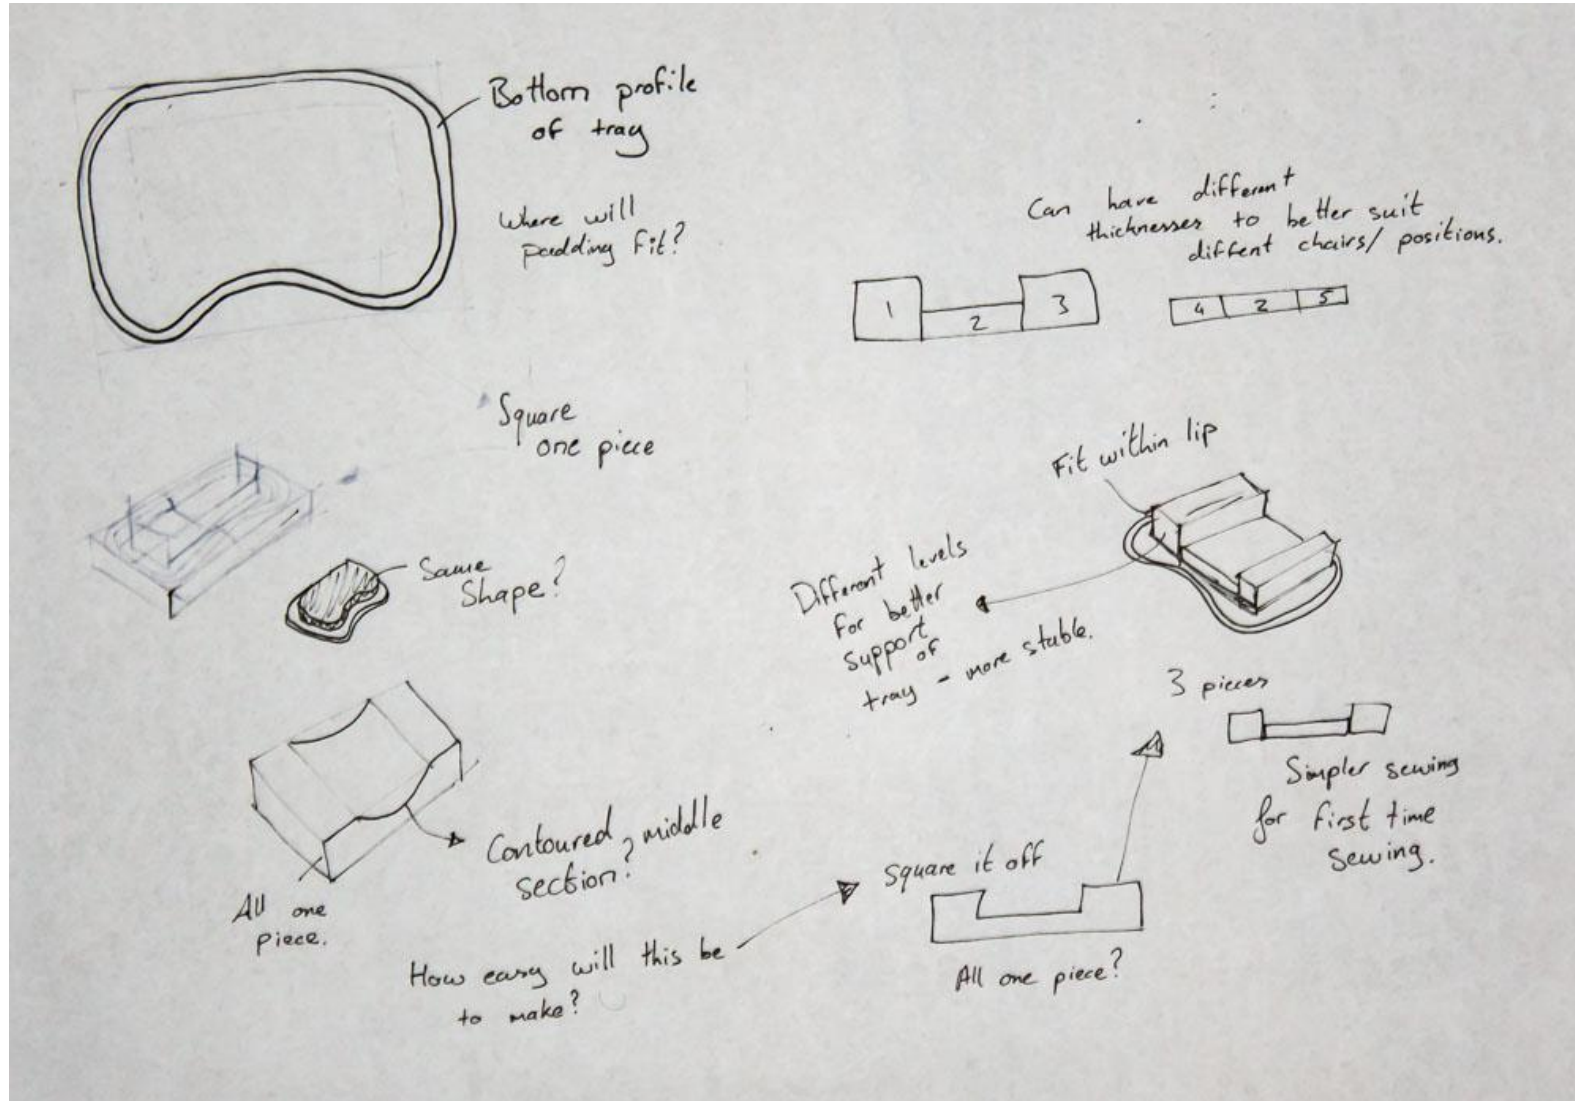 Bottom profile
of tray
Where will
padding fit?
Can have different
thicknesses to better suit
diffent chairs/ positions.
1
2
3
4
2
5
Square
one piece
Same
Shape?
Fit within lip
Different levels
for better
support
of
tray - more stable.
3 pieces
Simpler sewing
for first time
sewing.
Contoured, middle
section?
All one
piece.
How easy will this be
to make?
Square it off
All one piece?